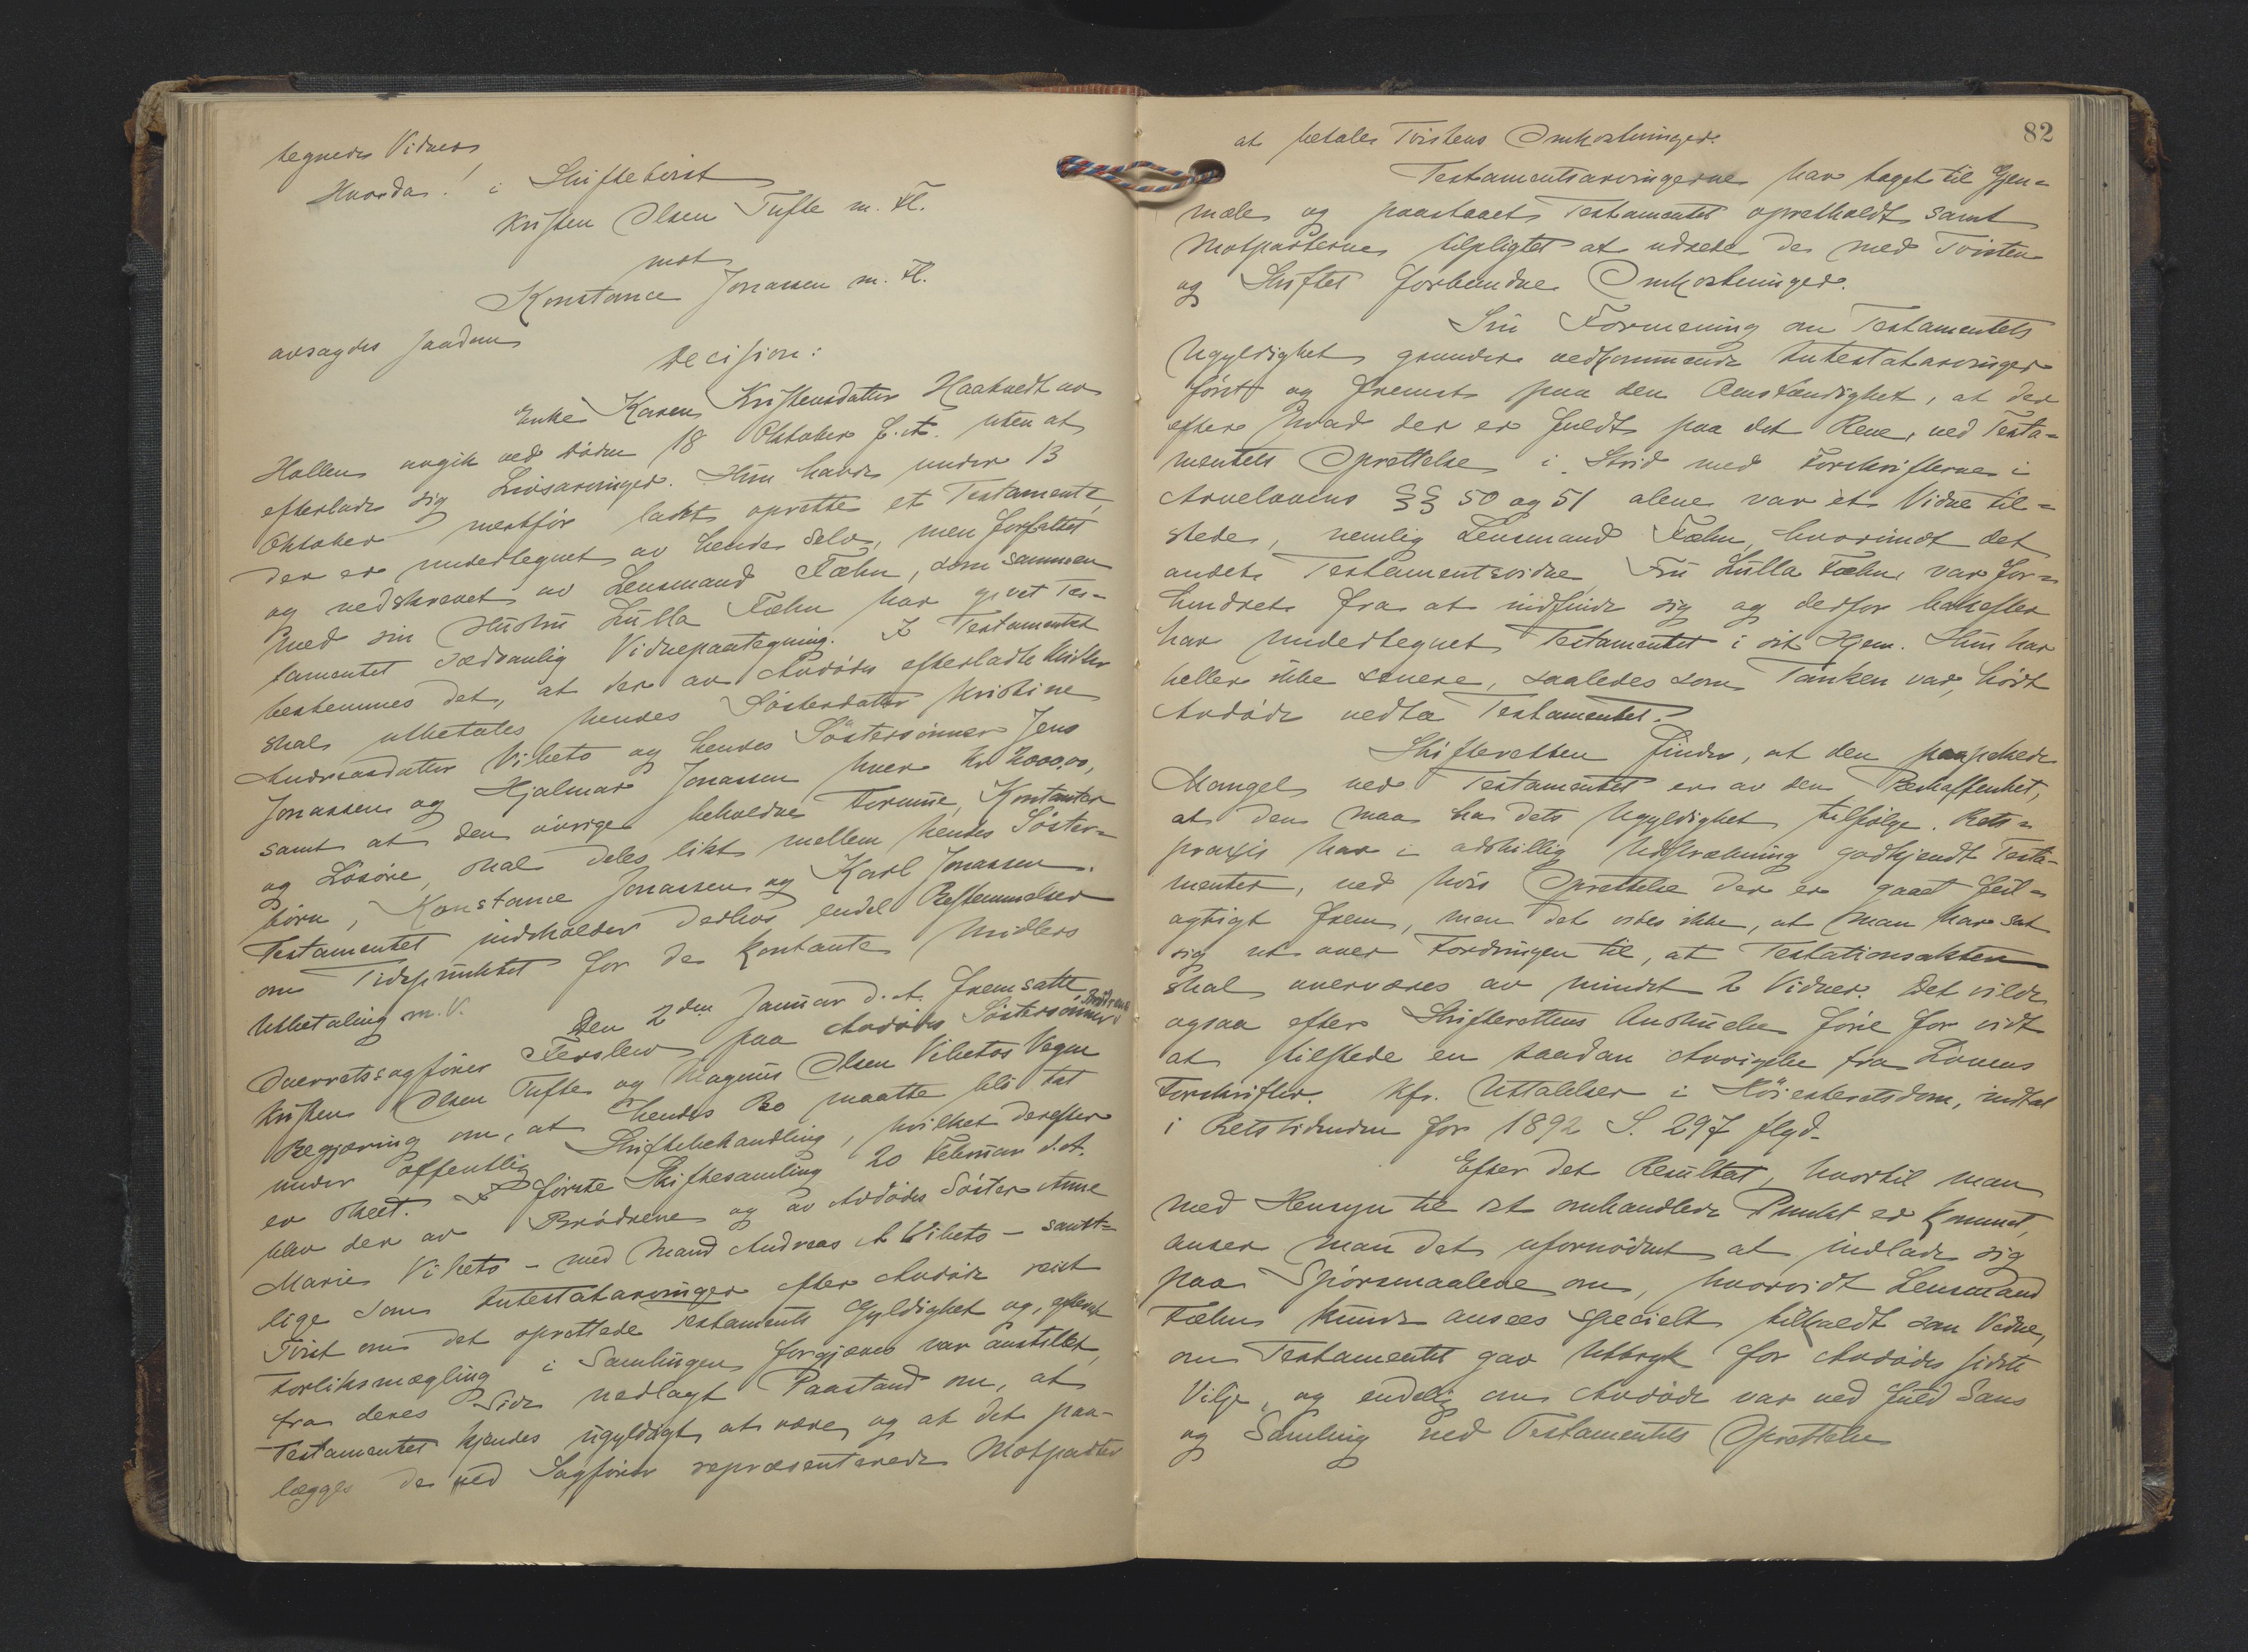 tegnede Vidner
Hvorda! i Skiftetvist
Kristen Olsen Tufte m. Fl.
mot
Konstance Jonassen m. Fl.
avsagdes saadan
Decision:
Enke Karen Kristensdatter Haatvedt av
Hollen avgik ved Döden 18 Oktober f. A. uten at
efterlade sig Livsarvinger. Hun havde under 13
Oktober næstför ladt oprette et Testamente,
der er undertegnet av hende selv, men forfattet
og nedskrevet av Lensmand Fæhn, som sammen
med sin Hustru Lulla Fæhn har givet Tes-
tamentet sædvanlig Vidnepaategning. I Testamentet
bestemmes det, at der av Avdödes efterladte Midler
skal utbetales hendes Sösterdatter Kristine
Andreasdatter Vibeto og hendes Söstersönner Jens
Jonassen og Hjalmar Jonassen hver Kr 2000,00,
samt at den övrige beholdne Formue, Kontanter
og Lösöre, skal deles likt mellem hendes Söster-
börn, Konstance Jonassen og Karl Jonassen.
Testamentet indeholder derhos endel Bestemmelser
om Tidspunktet for de kontante Midlers
Utbetaling m. V.
Den 2den Januar d. A. fremsatte
Overretssagförer Ferslew paa Avdödes Söstersönner Brödrene
Kristen Olsen Tufte og Magnus Olsen Vibetos Vegne
Begjæring om, at hendes Bo maatte bli tat
under offentlig Skiftebehandling, hvilket derefter
er skeet. I förste Skiftesamling 20 Februar d. A.
blev der av Brödrene og av Avdödes Söster Anne
Marie Vibeto – med Mand Andreas A Vibeto – samt-
lige som Intestatarvinger efter Avdöde reist
Tvist om det oprettede Testaments Gyldighet og, efterat
Forliksmægling i Samlingen forgjæves var anstillet,
fra deres Side nedlagt Paastand om, at
Testamentet kjendes ugyldigt at være og at det paa-
lægges de ved Sagförer repræsenterede Motparter
82
at betale Tvistens Omkostninger.
Testamentsarvingerne har taget til Gjen-
mæle og paastaaet Testamentet opretholdt samt
Motparterne tilpligtet at udrede de med Tvisten
og Skiftet forbundne Omkostninger.
Sin Formening om Testamentets
Ugyldighet grunder vedkommende Intestatarvinger
först og fremst paa den Omstændighet, at der
efter hvad der er fuldt paa det Rene, ved Testa-
mentets Oprettelse i Strid med Forskrifterne i
Arvelovens §§ 50 og 51 alene var et Vidne til-
stede, nemlig Lensmand Fæhn, hvorimot det
andet Testamentsvidne Fru Lulla Fæhn var for-
hindret fra at indfinde sig og derfor bakefter
har undertegnet Testamentet i sit Hjem. Hun har
heller ikke senere, saaledes som Tanken var, hört
Avdöde vedta Testamentet.
Skifteretten finder, at den paapekede
Mangel ved Testamentet er av den Beskaffenhet,
at den maa ha dets Ugyldighet tilfölge. Rets-
praxis har i adskillig Utstrækning godkjendt Testa-
menter, ved hvis Oprettelse der er gaaet feil-
agtigt frem, men det vites ikke, at man har sat
sig ut over Fordringen til, at Testationsakten
skal overværes av mindst 2 Vidner. Det vilde
ogsaa efter Skifterettens Anskuelse före for vidt
at tilstede en saadan Avvigelse fra Lovens
Forskrifter. Kfr. Uttalelser i Höiesteretsdom, indtat
i Retstidenden for 1892 S. 297 flgd.
Efter det Resultat, hvortil man
med Hensyn til det omhandlede Punkt er kommet,
anser man det ufornödent at indlade sig
paa Spörsmaalene om, hvorvidt Lensmand
Fæhn kunde ansees specielt tilkaldt som Vidne,
om Testamentet gav Uttryk for Avdödes sidste
Vilje, og endelig om Avdöde var ved fuld Sans
og Samling ved Testamentets Oprettelse